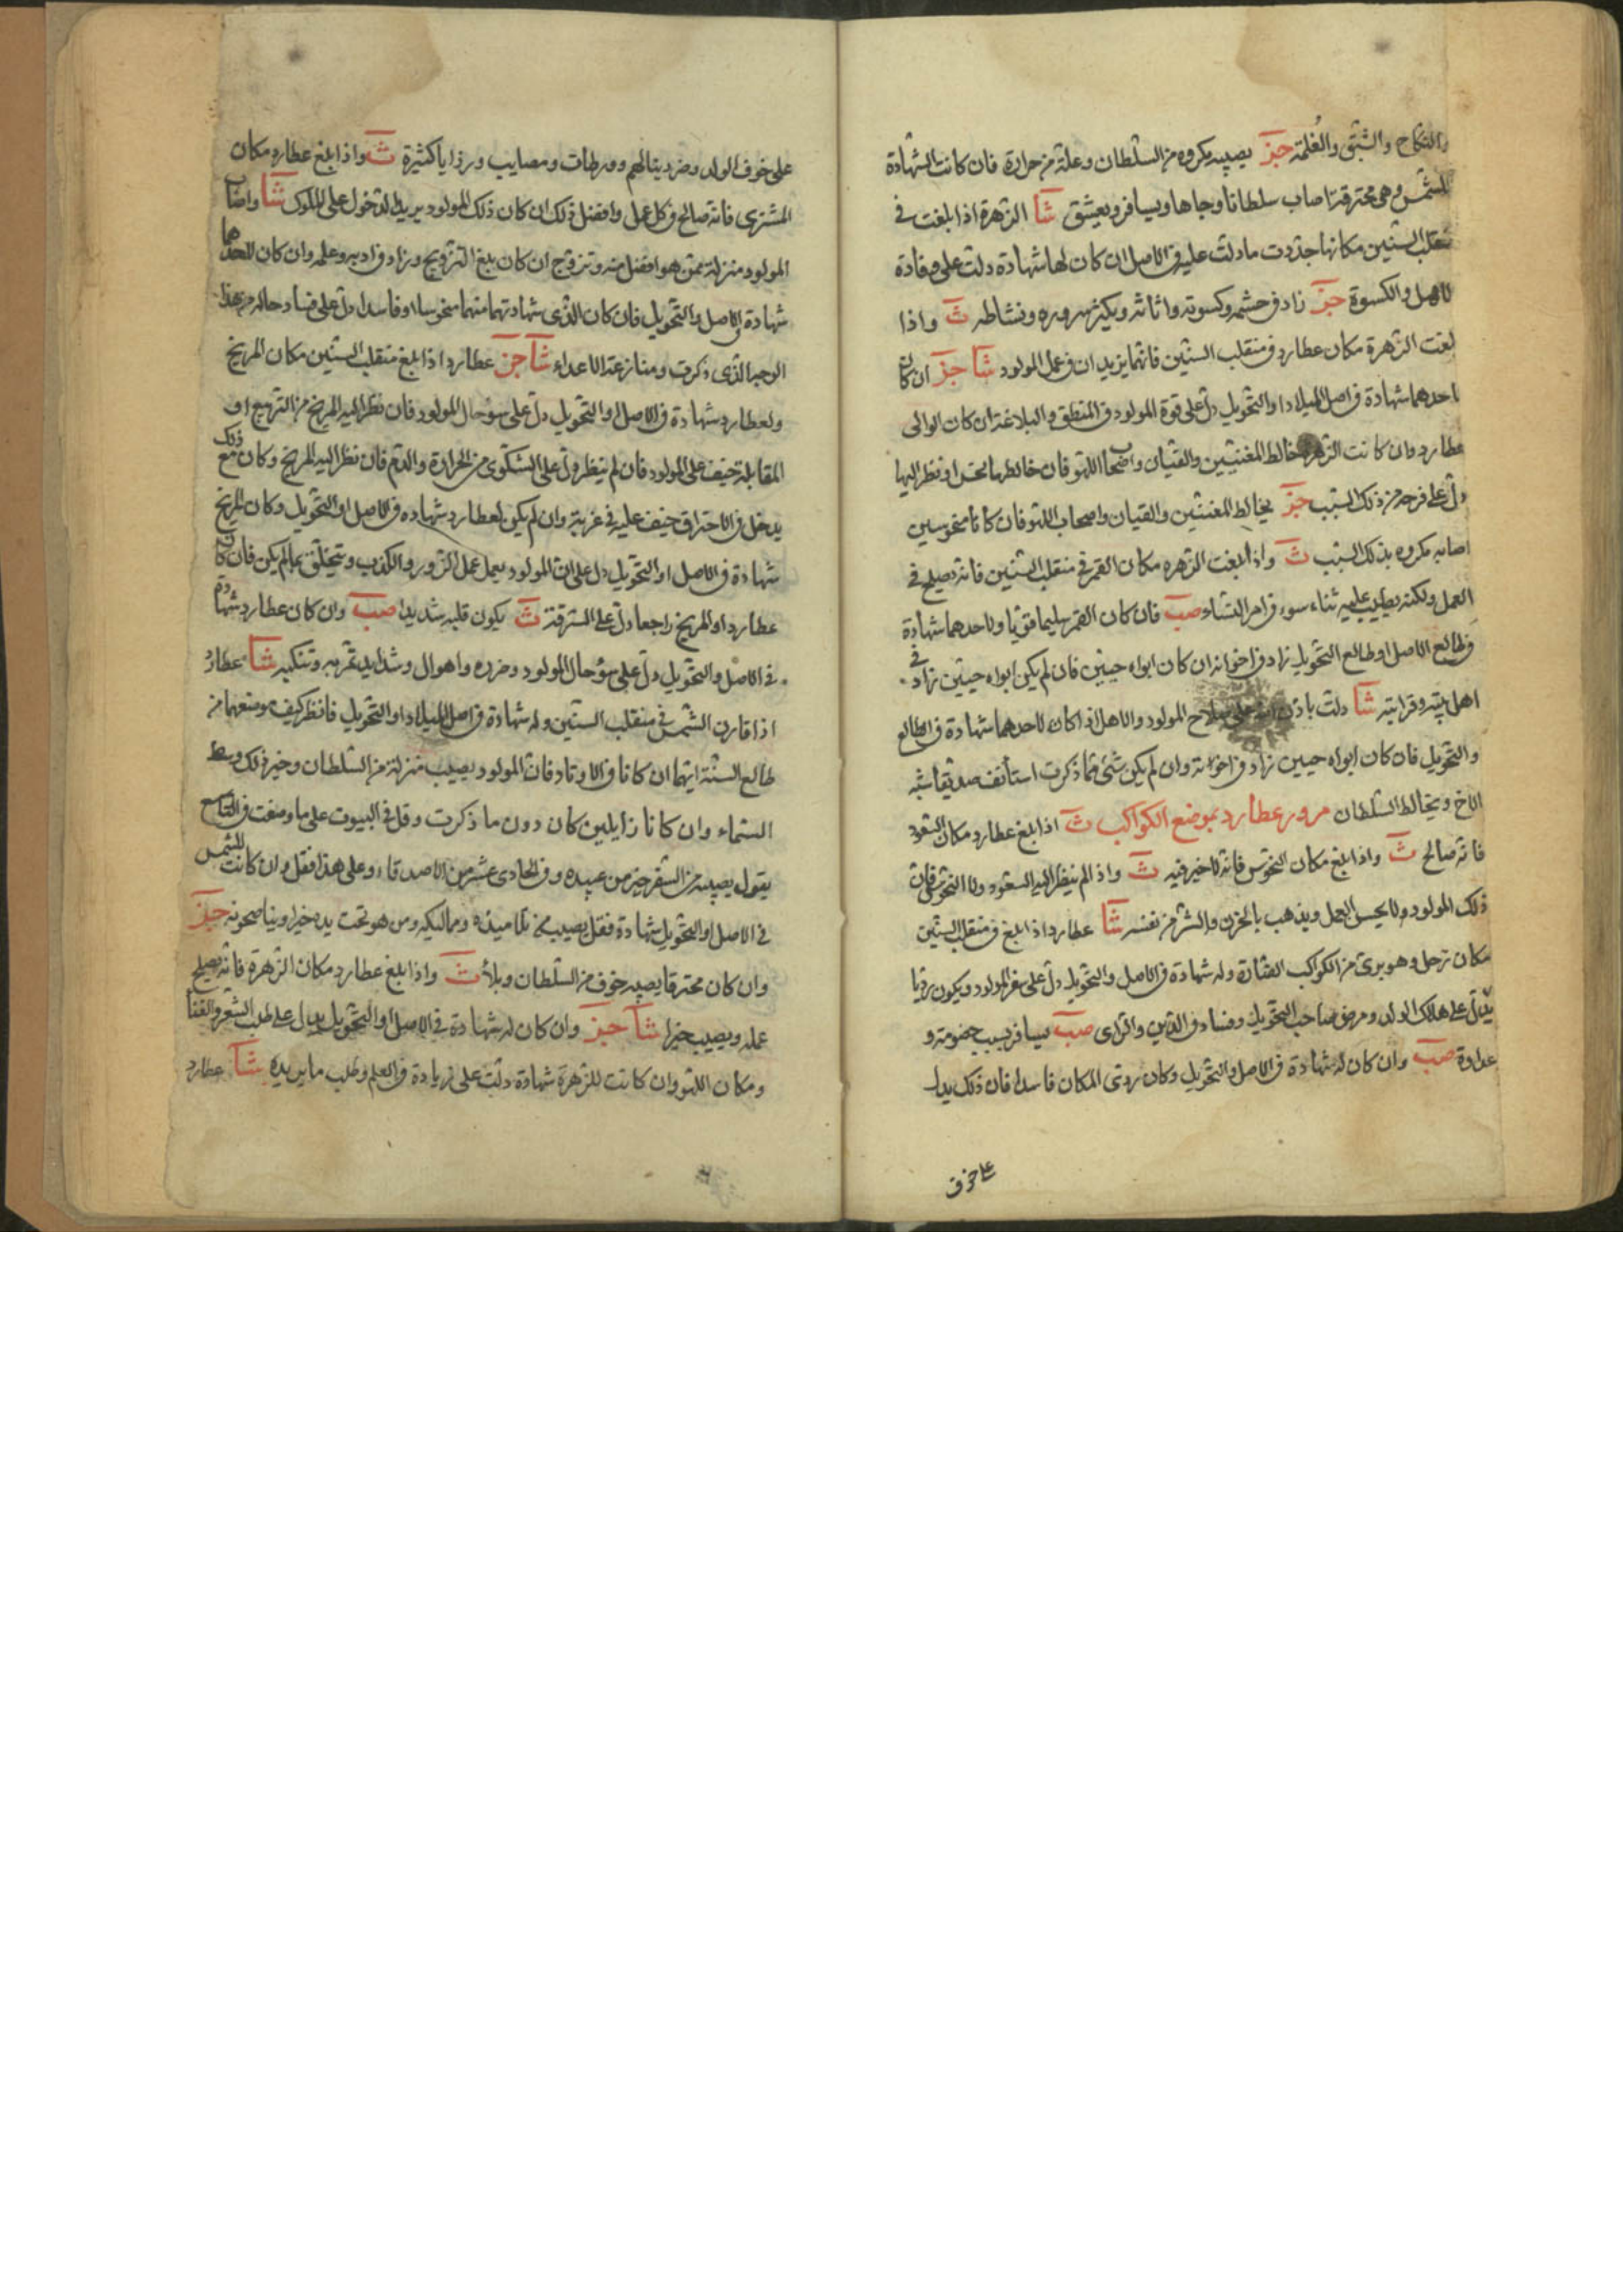 والنكاح والشبق والغُلمة حبر يصيبه مكروه من السلطان وعلة من حرارة فان كانت الشهادة
للشمس وهى محترقة اصاب سلطانا وجاها ويسافر ويعشق شا الزهرة اذا بلغت فى
منقلب السنين مكانها جددت ما دلت عليه فى الاصل ان كان لها شهادة دلت على
الاهل والكسوة حبر زاد فى حشمه وكسوته واثاثه ويكثر سروره ونشاطه ث واذا
بلغت الزهرة مكان عطارد فى منقلب السنين فانهما يزيدان فى عمل المولود شا حبر ان كان
لاحدهما شهادة فى اصل الميلاد او التحويل دل على قوة المولود فى المنطق والبلاغة ان كان الوالى
عطارد وان كانت الزهرة خالط المغنيين والقيان واصحاب اللهو فان خالطها نحس او نظر اليها
دل على فرحه من ذلك السبب حبر يخالط المغنيين والقيان واصحاب اللهو فان كانا منحوسين
اصابه مكروه بذلك السبب ث واذا بلغت الزهره مكان القمر فى منقلب السنين فانه يصلح فى
العمل ولكنه يطيب عليه ثناء سوء فى امر النساء صب فان كان القمر سليما قويا ولاحدهما شهادة
فى طالع الاصل او طالع التحويل زاد فى اخوانه ان كان ابواه حيين فان لم يكن ابواه حيين زاد فى
اهل بيته وقرابته شا دلت باذن الله على صلاح المولود والاهل اذا كان لاحدهما شهادة فى الطالع
والتحويل فان كان ابواه حيين زاد فى اخوته وان لم يكن شئ مما ذكرت استأنف صديقا شبه
الاخ ويخالط السلطان مرور عطارد بموضع الكواكب ث اذا بلغ عطارد مكان السعود
فانه صالح ث واذا بلغ مكان النحوس فانه لا خير فيه ث واذا لم ينظر اليه السعود ولا النحوس فان
ذلك المولود ولا يحسن العمل ويذهب بالحزن والشر من نفسه شا عطارد اذا بلغ فى منقلب السنين
مكان زحل وهو برئ من الكواكب الضارة وله شهادة فى الاصل والتحويل دل على سفر المولود ويكون رديا
يدل على هلاك الولد ومرض صاحب التحويل وفساد فى الدين والراى صب يسافر بسبب خصومة و
عداوة صب وان كان له شهادة فى الاصل والتحويل وكان ردئ المكان فاسدا فان ذلك يدل
على خوف
على خوف الولد وضرر ينالهم وورطات ومصايب ورزايا كثيرة ث واذا بلغ عطارد مكان
المشترى فانه صالح فى كل عمل وافضل ذلك ان كان ذلك المولود يريد الدخول على الملوك شا واصاب
المولود منزلة ممن هو افضل منه وتزوج ان كان بلغ التزويج وزاد فى ادبه وعلمه وان كان لاحدهما
شهادة فى الاصل والتحويل فان كان الذى شهادتهما منهما منحوسا او فاسدا دل على فساد حاله من هذا
الوجه الذى ذكرت ومنازعة الاعداء شا حبر عطارد اذا بلغ منقلب السنين مكان المريخ
ولعطارد شهادة فى الاصل او التحويل دل على سوء حال المولود فان نظر اليه المريخ من التربيع او
المقابلة خيف على المولود فان لم ينظر دل على الشكوى من الحرارة والدم فان نظر اليه المريخ وكان مع ذلك
يدخل فى الاحتراق خيف عليه فى غربة وان لم يكن لعطارد شهاده فى الاصل او التحويل وكان للمريخ
شهادة فى الاصل او التحويل دل على ان المولود يعمل عمل الزور والكذب ويتخلق بما لم يكن فان كان
عطارد او المريخ راجعا دل على السرقة ث يكون قلبه شديدا صب وان كان عطارد شهادة
فى الاصل والتحويل دل على سوء حال المولود وضرره واهوال وشدايد تمر به وتنكيه شا عطارد
اذا قارن الشمس فى منقلب السنين وله شهادة فى اصل الميلاد او التحويل فانظر كيف موضعهما من
طالع السنة ايهما ان كانا فى الاوتاد فان المولود يصيب منزلة من السلطان وخير ذلك وسط
السماء وان كانا زايلين كان دون ما ذكرت وقل فى البيوت على ما وصفت فى التاسع
يقول يصيبه من السفر خير من عبيده وفى الحادى عشر من الاصدقاء وعلى هذا فقل وان كانت للشمس
فى الاصل او التحويل شهادة فقل يصيب من تلاميذه ومماليكه ومن هو تحت يده خيرا ويناصحونه حبر
وان كان محترقا يصيبه خوف من السلطان وبلأ ث واذا بلغ عطارد مكان الزهرة فانه يصلح
عمله ويصيب خيرا شا حبر وان كان له شهادة فى الاصل او التحويل يدل على طلب الشعر والغنا
ومكان اللهو وان كانت للزهرة شهادة دلت على زيادة فى العلم وطلب ما يريده شا عطارد